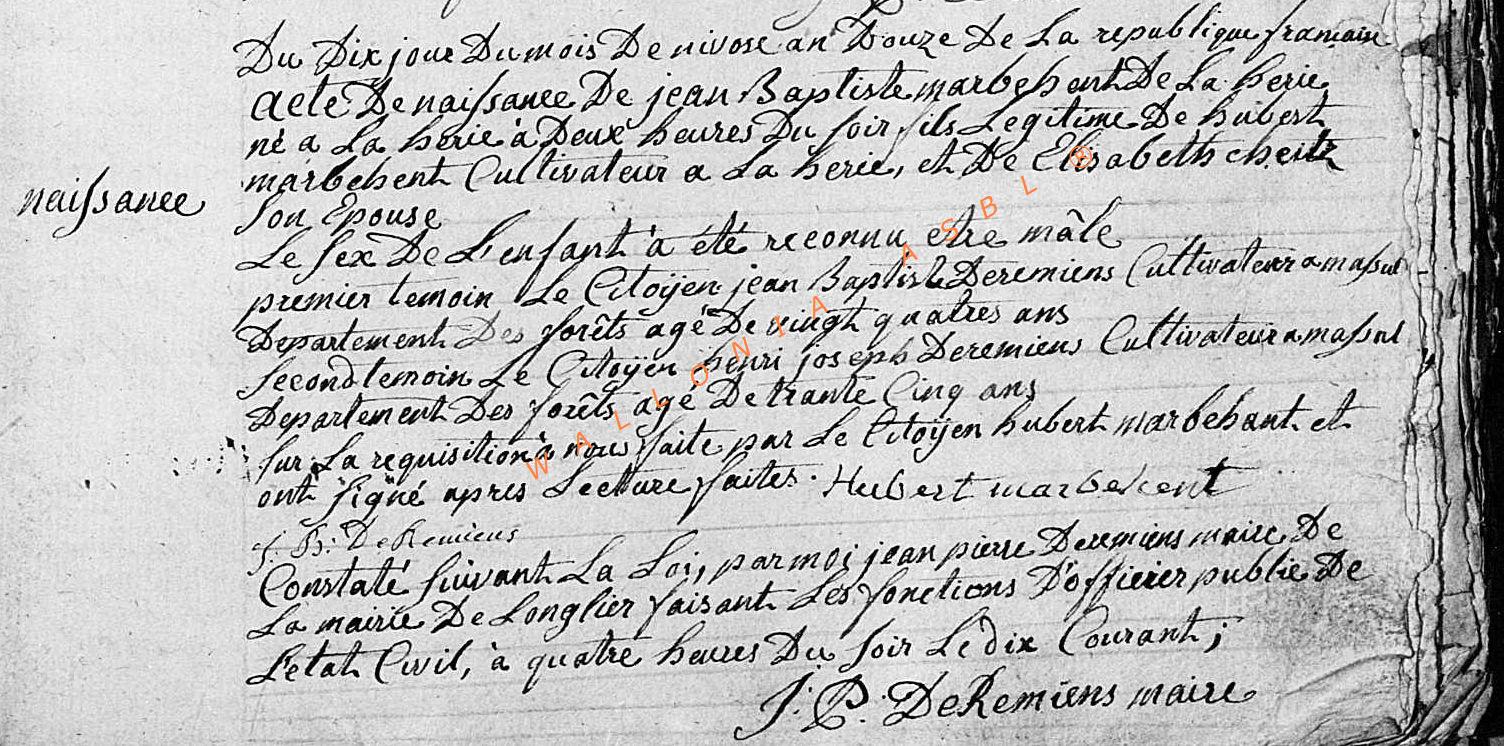 Du Dix jour Du mois De nivose an Douze De La republique francaise
acte De naissance De jean Baptiste marbehent De La herie
né a La herie à Deux heures Du soir fils Legitime De hubert
marbehent Cultivateur a La herie, et De Elisabeth
naissance
son Epouse
Le sex De L'enfant à été reconnu etre mâle
premier temoin Le Citoÿen jean Baptiste Deremiens Cultivateur a massul
Departement Des forêts agé De vingt quatres ans
second temoin Le Citoÿen henri joseph Deremiens Cultivateur a massul
Departement Des forêts agé De trante Cinq ans
sur La requisition à nous faite par Le Citoÿen hubert marbehant et
ont signé apres Lecture faites. Hubert marbehent
J. B. DeRemiens
Constaté suivant La Loi, par moi jean pierre Deremiens maire De
La mairie De Longlier faisant Les fonctions D'officier public De
L'etat Civil, à quatre heures Du soir Le dix Courant;
J. P. DeRemiens maire
WALLONIA ASBL ®